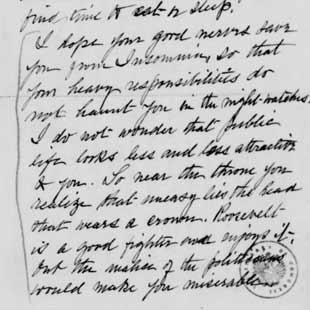 find time to eat or sleep!
I hope your good nerves save
you from Insomnia, so that
your heavy responsibilities do
not haunt you in the night-watches.
I do not wonder that public
life looks less and less attractive
to you. So near the throne you
realize that uneasy lies the head
that wears a crown. Roosevelt
is a good fighter and enjoys it.
But the malice of the politicians
would make you miserable.